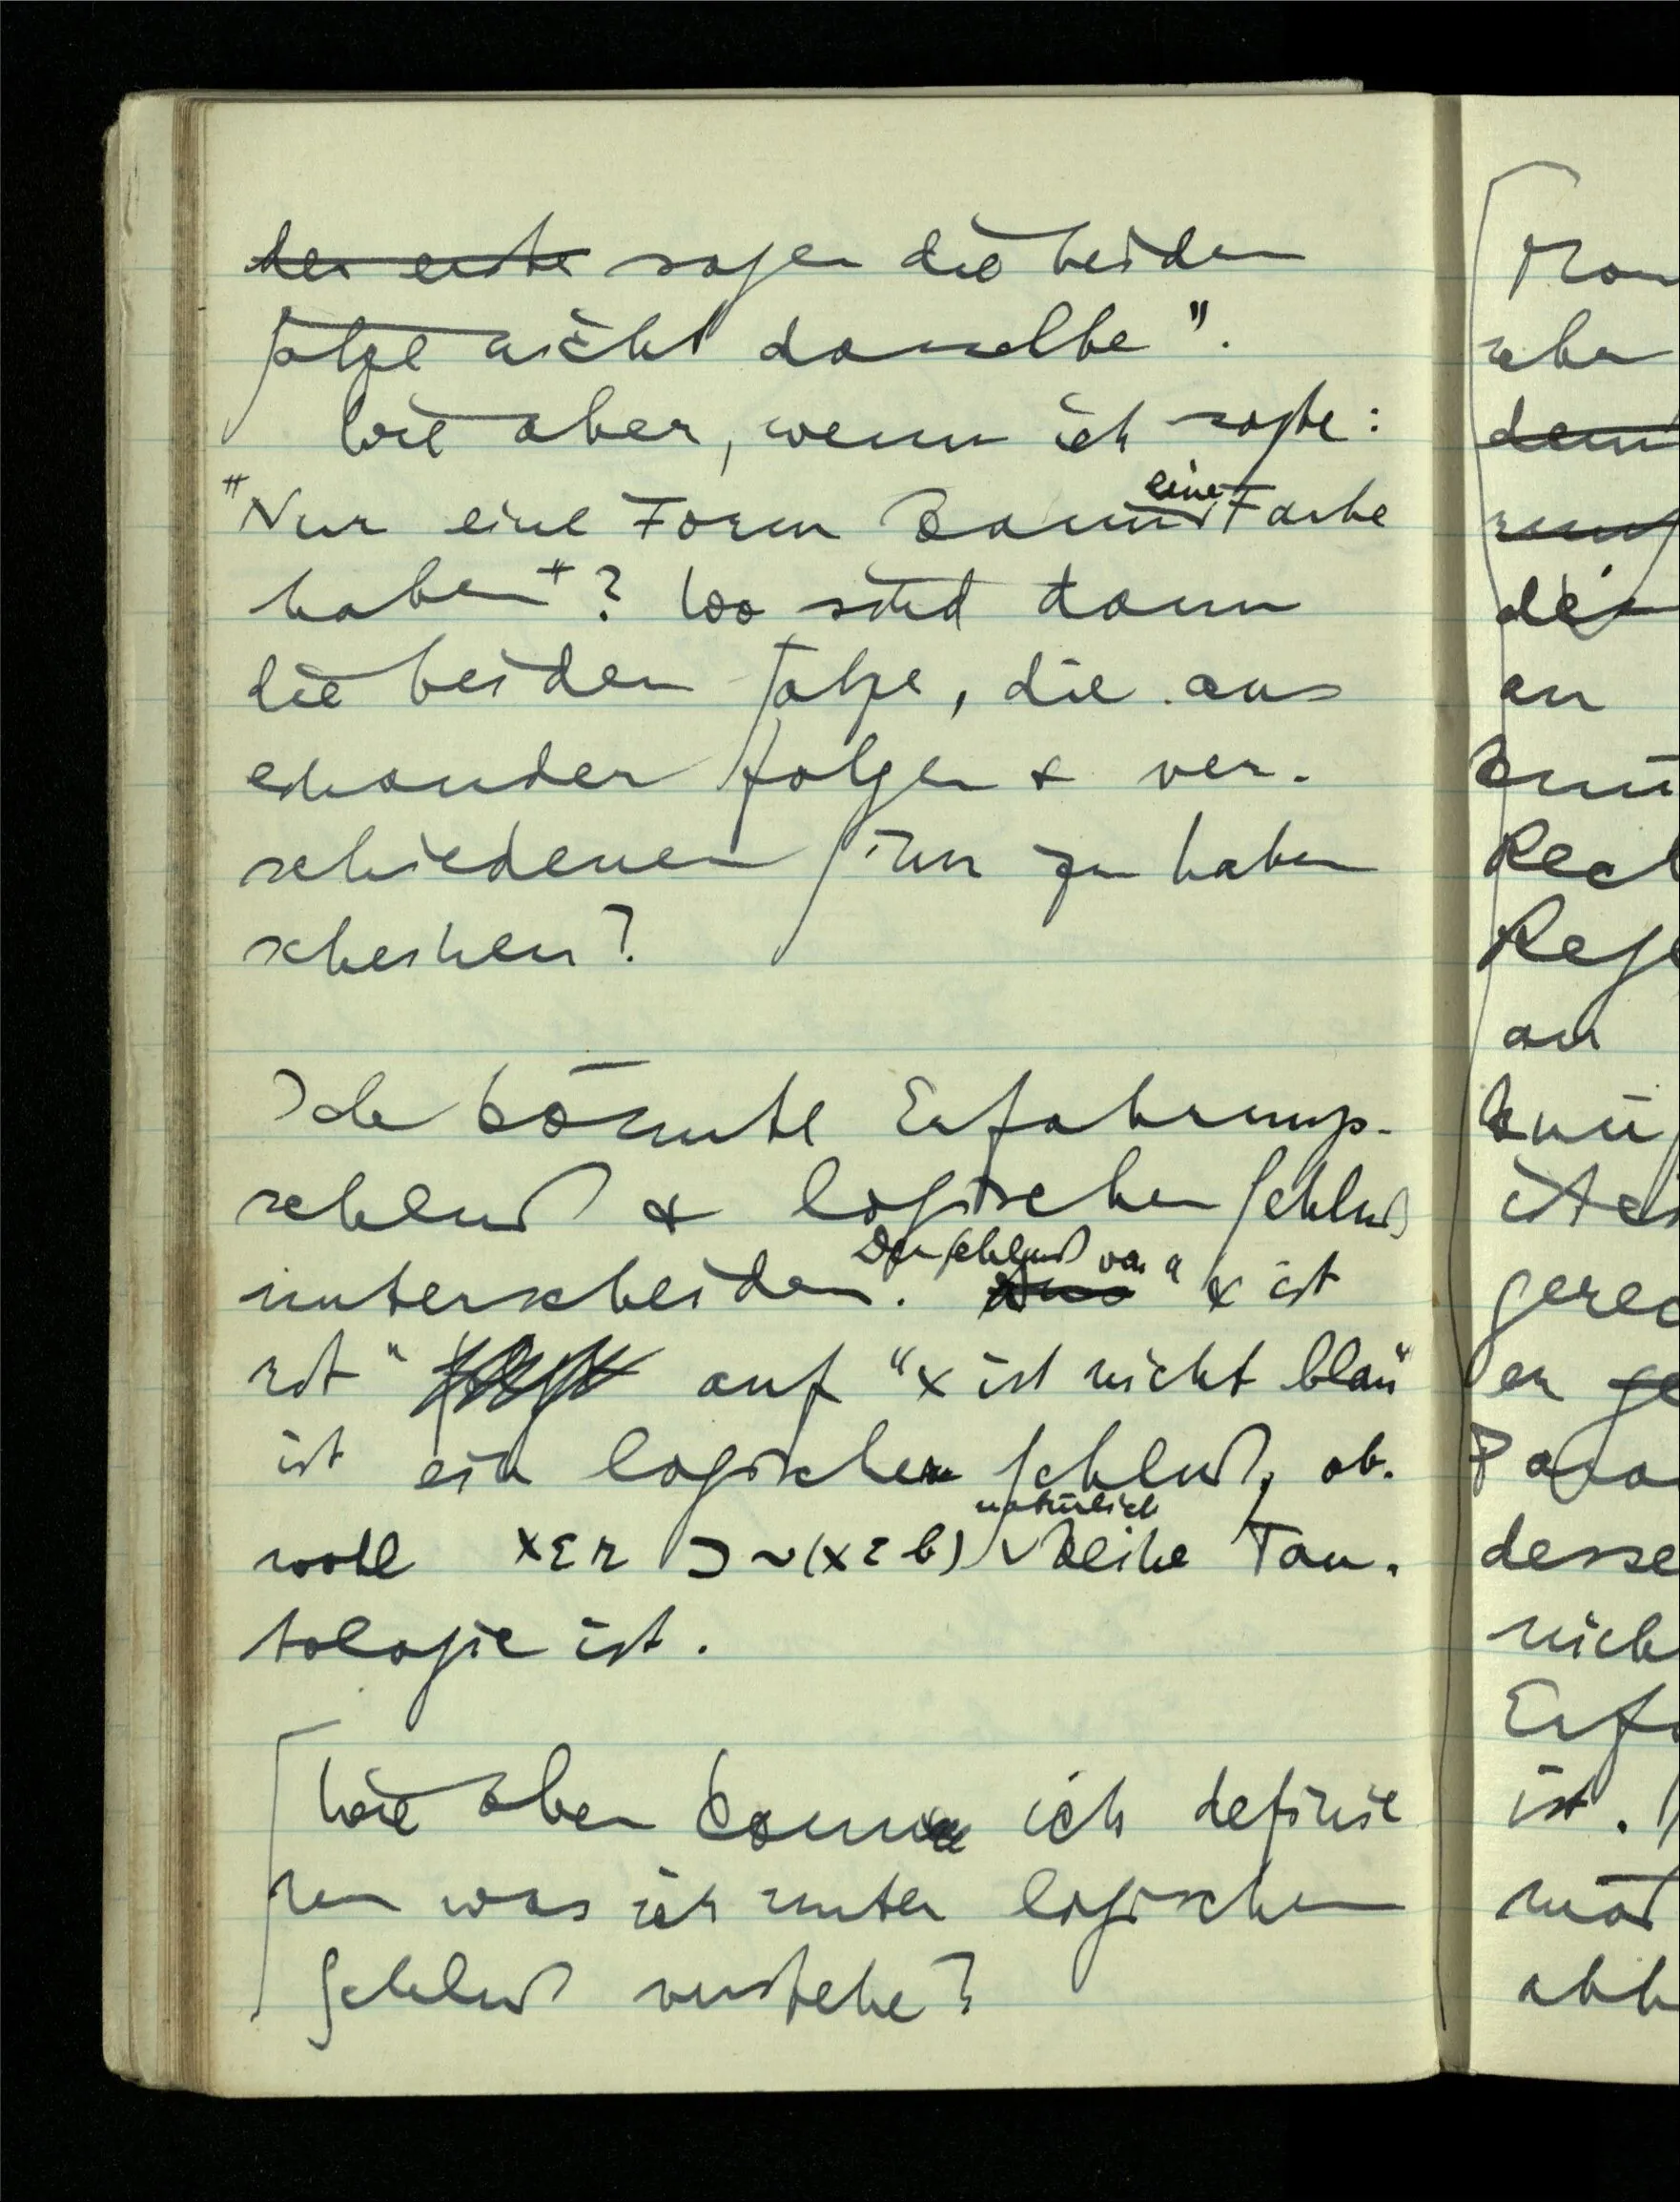 der erste sagen die beiden
Sätze nicht dasselbe".
Wie aber, wenn ich sagte:
"Nur eine Form kann eine Farbe
haben"? Wo sind dann
die beiden Sätze, die aus
einander folgen & ver-
schiedenen Sinn zu haben
scheinen?
Ich könnte Erfahrungs-
schluß & logischen Schluß
unterscheiden. Der Schluß von "x ist
rot" auf "x ist nicht blau"
ist ein logischer Schluß, ob-
wohl xεr ⊃ ~(xεb) natürlich keine Tau-
tologie ist.
Wie aber kann ich definie
ren was ich unter logischem
Schluß verstehe?